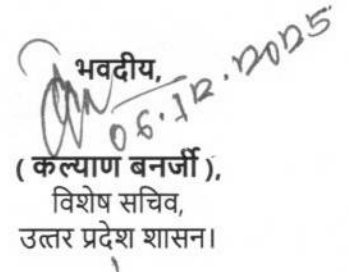 भवदीय,
06.12.2025
( कल्याण बनर्जी ),
विशेष सचिव,
उत्तर प्रदेश शासन।